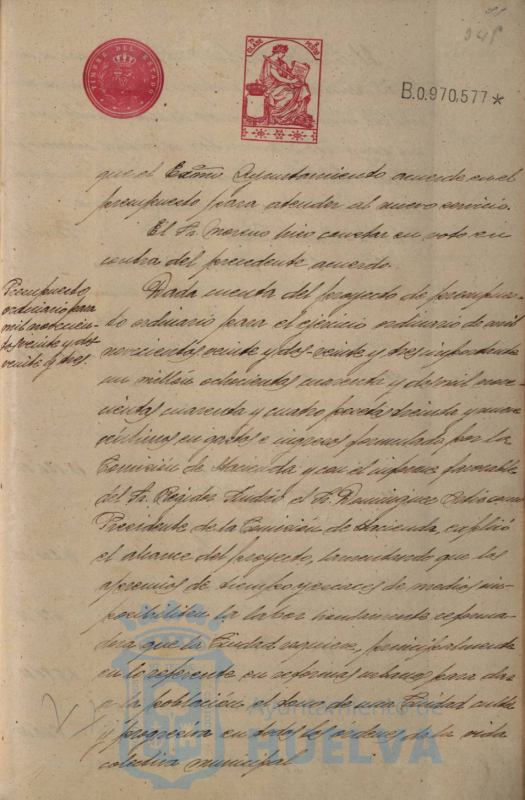 TIMBRE DEL ESTADO
7ª CLASE
PESOS
B.0,970,577*
que el Excmo Ayuntamiento acuerde en el
presupuesto para atender al nuevo servicio.
El Sr. Moreno hizo constar su voto en
contra del precedente acuerdo.
Presupuesto
ordinario para
mil novecien-
tos veinte y dos
veinte y tres
Dada cuenta del proyecto de presupues-
to ordinario para el ejercicio ordinario de mil
novecientos veinte y dos-veinte y tres importante
un millón ochocientas cuarenta y dos mil nove-
cientas cuarenta y cuatro pesetas treinta y nueve
céntimos en gastos e ingresos formulado por la
Comisión de Hacienda y con el informe favorable
del Sr. Regidor Síndico el Sr. Dominguez como
Presidente de la Comisión de Hacienda, explicó
el alcance del proyecto, lamentando que los
apremios de tiempo y escases de medios im-
posibiliten la labor hondamente reforma-
dora que la Ciudad requiere, principalmente
en lo referente en reformas urbanas para dar
a la población el tono de una Ciudad culta
y progresiva en todos los órdenes de la vida
colectiva municipal
Ayuntamiento de
HUELVA